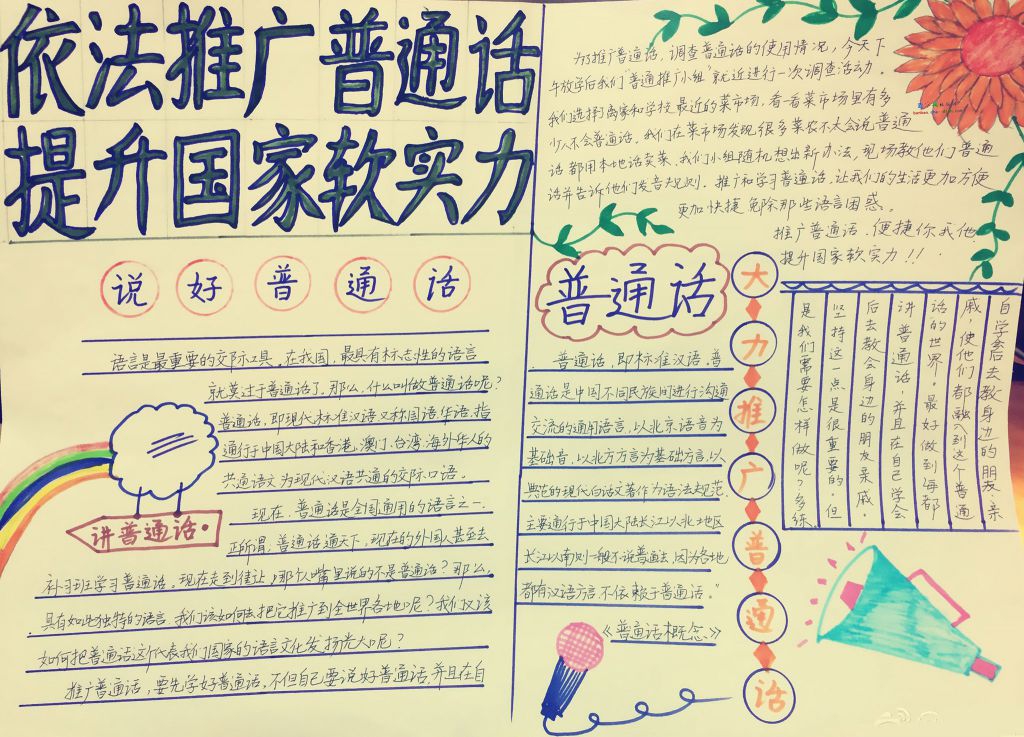 依法推广普通话
提升国家软实力
说好普通话
语言是最重要的交际工具。在我国，最具有标志性的语言
就莫过于普通话了。那么，什么叫做普通话呢？
普通话，即现代标准汉语又称国语、华语，指
通行于中国大陆和香港、澳门、台湾、海外华人的
共通语文为现代汉语共通的交际口语。
现在，普通话是全国通用的语言之一，
正所谓，普通话通天下，现在的外国人甚至去
补习班学习普通话。现在走到街上，那个人嘴里说的不是普通话？那么，
具有如此独特的语言，我们该如何去把它推广到全世界各地呢？我们又该
如何把普通话这个代表我们国家的语言文化发扬光大呢？
推广普通话，要先学好普通话，不但自己要说好普通话，并且在自
讲普通话。
为了推广普通话，调查普通话的使用情况，今天下
午放学后我们"普通推广小组"就近进行一次调查活动。
我们选择了离家和学校最近的菜市场，看一看菜市场里有多
少人不会普通话。我们在菜市场发现很多菜农不太会说普通
话都用本地话卖菜。我们小组随机想出新办法，现场教他们普通
话并告诉他们发音规则。推广和学习普通话，让我们的生活更加方便
更加快捷免除那些语言困惑。
推广普通话，便捷你我他
提升国家软实力！！
普通话
普通话，即标准汉语。普
通话是中国不同民族间进行沟通
交流的通用语言，以北京语音为
基础音，以北方方言为基础方言，以
典范的现代白话文著作为语法规范。
主要通行于中国大陆长江以北地区
长江以南则一般不说普通话，因为各地
都有汉语方言，不依赖于普通话。"
《普通话概念》
大力推广普通话
自学会后去教身边的朋友亲
戚，使他们都融入到这个普通
话的世界。最好做到每都
讲普通话，并且在自己学会
后去教会身边的朋友亲戚。
坚持这一点是很重要的。但
是我们需要怎样做呢？多练